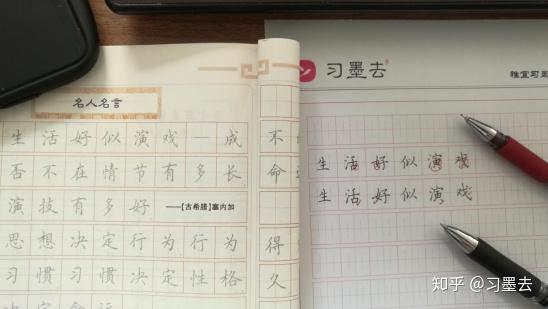 名人名言
生活好似演戏一成
否不在情节有多长
演技有多好——[古希腊]塞内加
思想决定行为行为
习惯习惯决定性格
不
命
得
久
习墨去
雅宜习墨
生活好似演戏
生活好似演戏
知乎 @习墨去